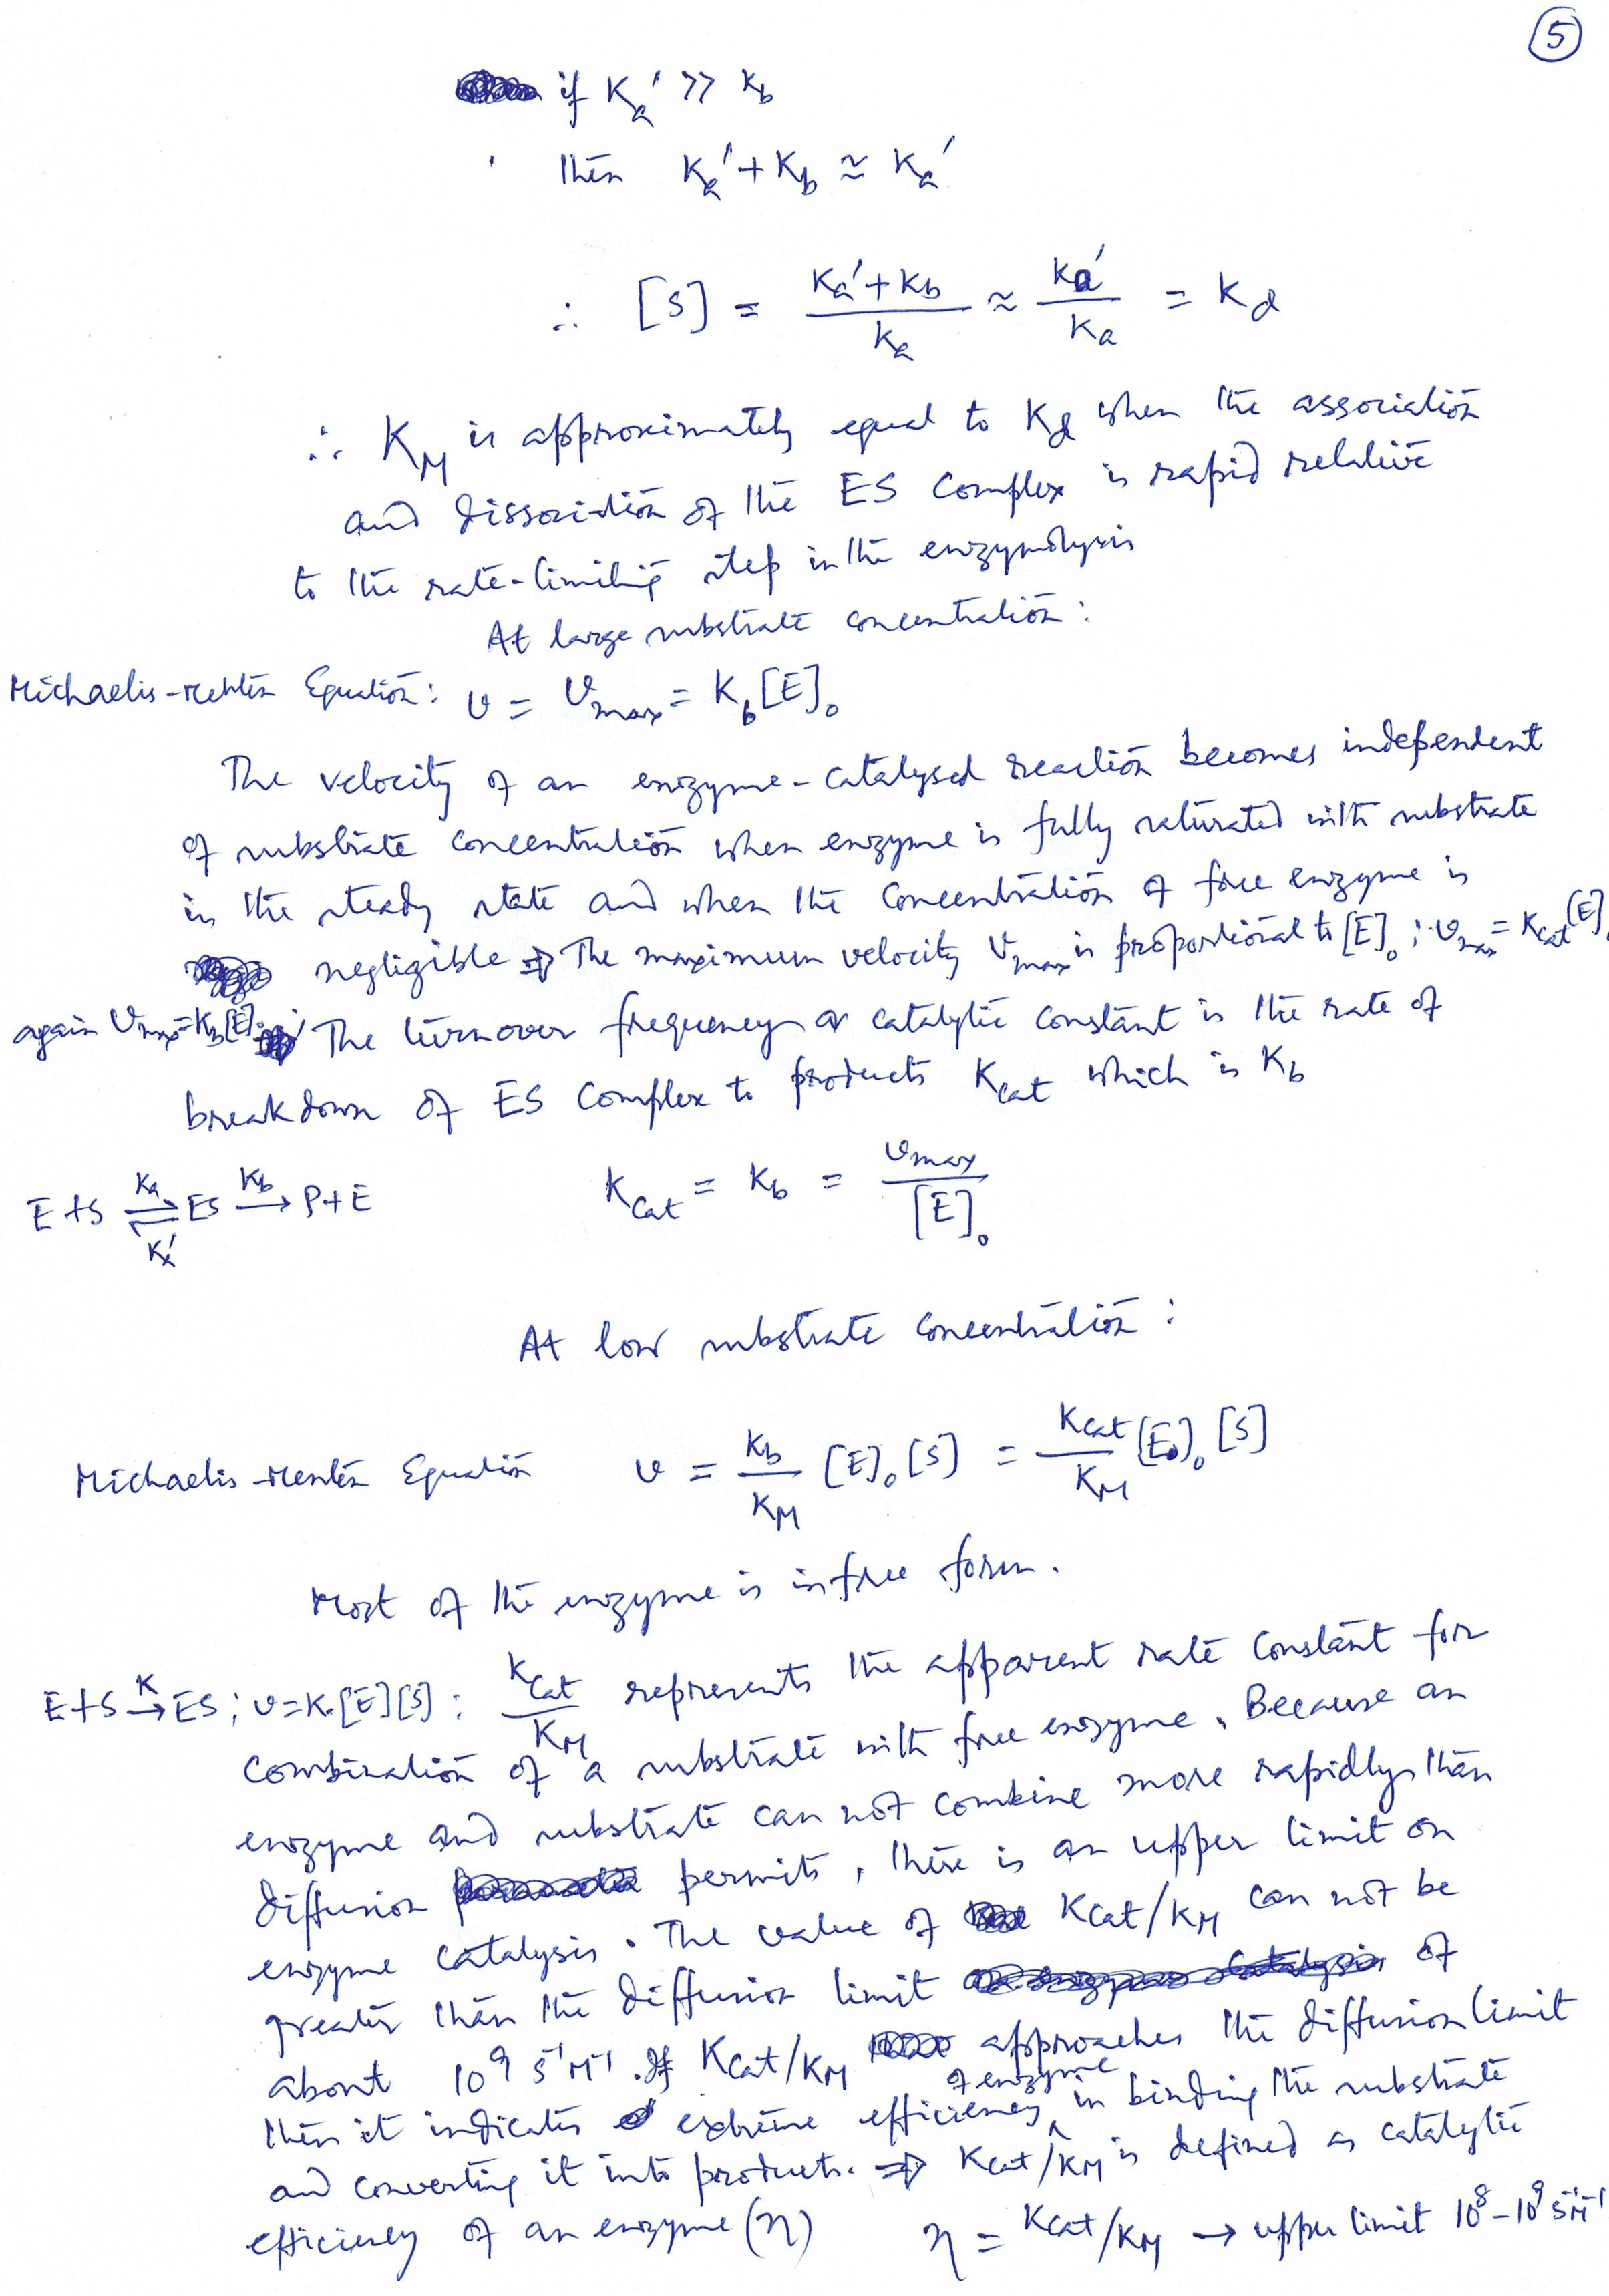 5
if Ka' >> kb
then Ka' + Kb ≈ Ka'
∴ [S] = (Ka' + Kb)/Ka ≈ Ka'/Ka = Kd
∴ KM is approximately equal to Kd when the association
and dissociation of the ES complex is rapid relative
to the rate-limiting step in the enzymolysis
At large substrate concentration:
Michaelis-Menten Equation: v = vmax = Kb[E]₀
The velocity of an enzyme-catalysed reaction becomes independent
of substrate concentration when enzyme is fully saturated with substrate
in the steady state and when the concentration of free enzyme is
negligible ⇒ The maximum velocity vmax is proportional to [E]₀; vmax = Kcat[E]₀
again vmax = Kb[E]₀; The turnover frequency or catalytic constant is the rate of
breakdown of ES complex to products Kcat which is Kb
E+S ⇌ ES → P+E Ka Ka' Kb Kcat = Kb = vmax/[E]₀
At low substrate concentration:
Michaelis-Menten Equation v = (Kb/KM) [E]₀ [S] = (Kcat/KM) [E]₀ [S]
Most of the enzyme is in free form.
E+S →K ES; v=K.[E][S]; Kcat/KM represents the apparent rate constant for
combination of a substrate with free enzyme. Because an
enzyme and substrate can not combine more rapidly than
diffusion permits, there is an upper limit on
enzyme catalysis. The value of Kcat/KM can not be
greater than the diffusion limit of
about 10⁹ s⁻¹M⁻¹. If Kcat/KM approaches the diffusion limit
then it indicates extreme efficiency of enzyme in binding the substrate
and converting it into products. ⇒ Kcat/KM is defined as catalytic
efficiency of an enzyme (η) η = Kcat/KM → upper limit 10⁸–10⁹ s⁻¹M⁻¹